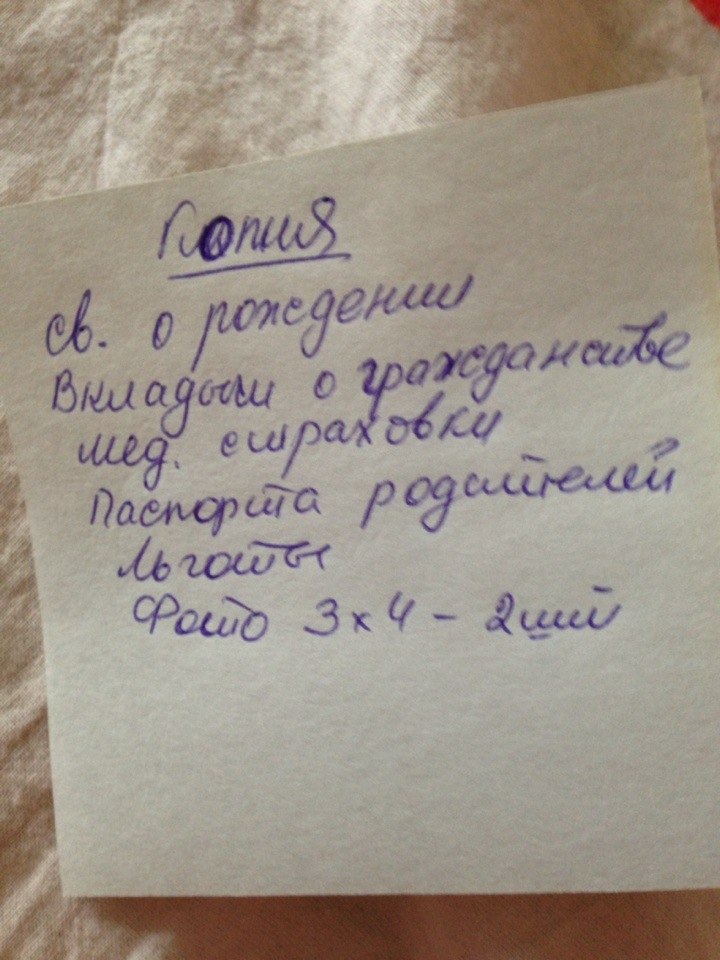 Копия
св. о рождении
Вкладыш о гражданстве
мед. страховки
Паспорта родителей
Льготы
Фото 3х4 - 2шт